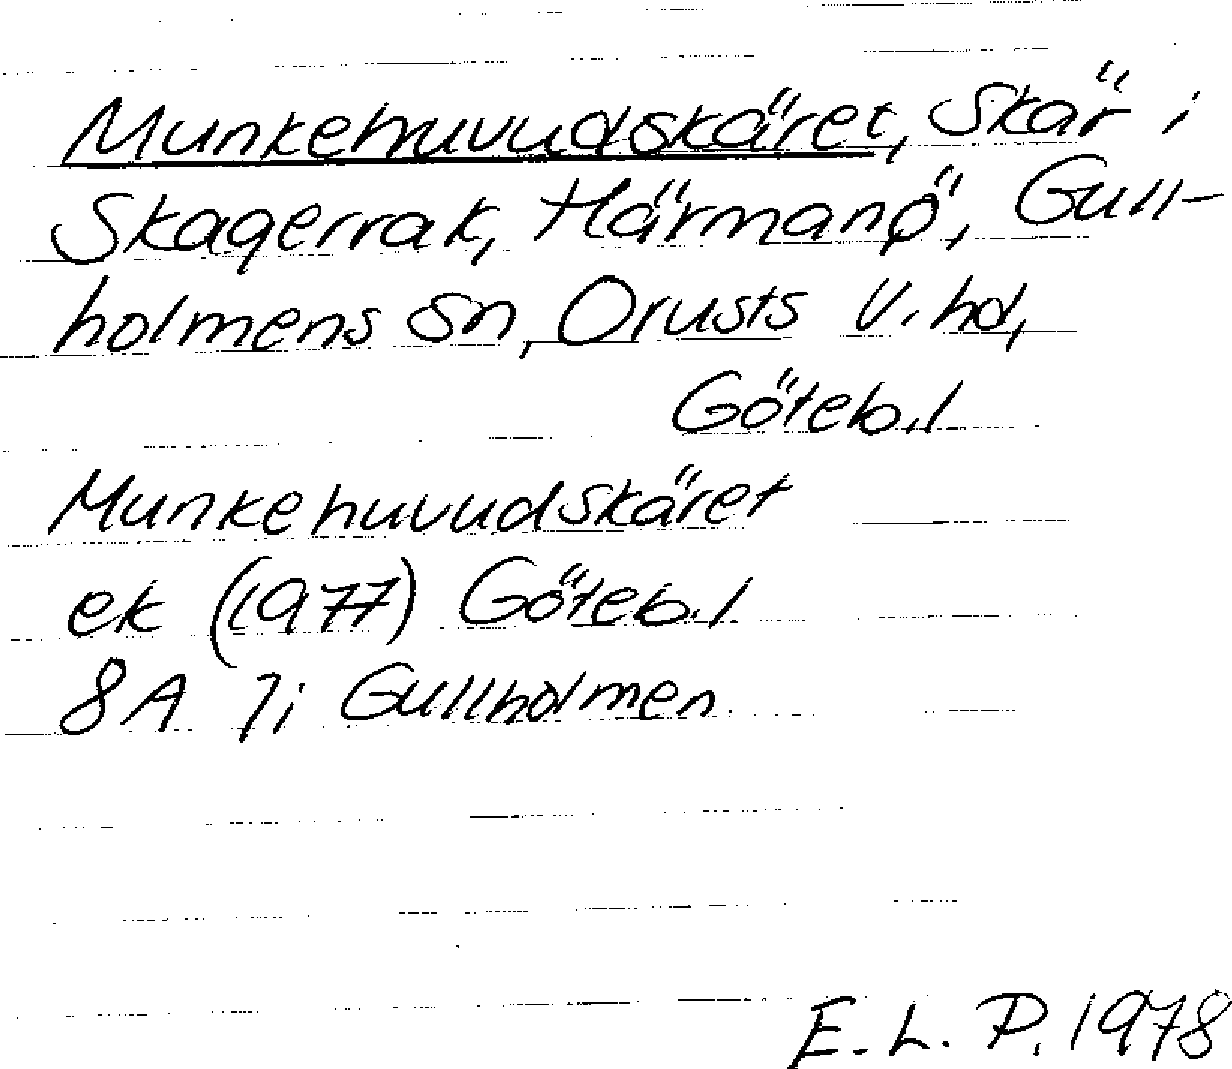 Munkehuvudskäret, Skär i
Skagerrak, Härmanö, Gull-
holmens sn, Orusts V. hd,
Göteb. l
Munkehuvudskäret
ek (1977) Göteb. l
8A 7i Gullholmen
E. L. P. 1978